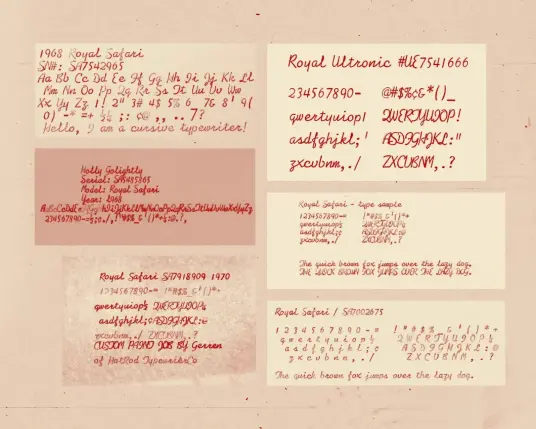 1968 Royal Safari
SN#: SA7542965
Aa Bb Cc Dd Ee Ff Gg Hh Ii Jj Kk Ll
Mm Nn Oo Pp Qq Rr Ss Tt Uu Vv Ww
Xx Yy Zz 1! 2" 3# 4$ 5% 6_ 7& 8' 9(
0) -* =+ ¼½ ;: ¢@ ,, .. /?
Hello, I am a cursive typewriter!
Holly Golightly
Serial: SA7485365
Model: Royal Safari
Year: 1968
AaBbCcDdEeFfGgHhIiJjKkLlMmNnOoPpQqRrSsTtUuVvWwXxYyZz
Royal Safari SA7918909 1970
1234567890-= !"#$%_&'()*+
qwertyuiop½ QWERTYUIOP¼
asdfghjkl;¢ ASDFGHJKL:@
zxcvbnm,./ ZXCVBNM,.?
CUSTOM PAINT JOB BY Gerren
of HotRod TypewriterCo
Royal Ultronic #UE7541666
234567890- @#$%¢&*()_
qwertyuiop! QWERTYUIOP!
asdfghjkl;' ASDFGHJKL:"
zxcvbnm,./ ZXCVBNM,.?
Royal Safari - type sample
1234567890-= !"#$%_&'()*+
qwertyuiop½ QWERTYUIOP¼
asdfghjkl;¢ ASDFGHJKL:@
zxcvbnm,./ ZXCVBNM,.?
The quick brown fox jumps over the lazy dog.
THE QUICK BROWN FOX JUMPS OVER THE LAZY DOG.
Royal Safari / SA7002675
1234567890-= !"#$%_&'()*+
qwertyuiop½ QWERTYUIOP¼
asdfghjkl;¢ ASDFGHJKL:@
zxcvbnm,./ ZXCVBNM,.?
The quick brown fox jumps over the lazy dog.